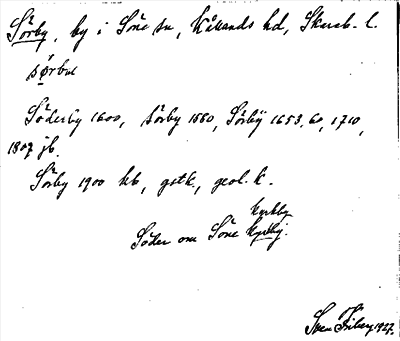 Sörby, by i Söne sn, Kållands hd, Skarab. l.
sø̀rbu
Söderby 1600, Sörby 1550, Sörby 1653, 60, 1710,
1807 jb.
Sörby 1900 hb, gstk, geol. k.
kyrkby
Söder om Söne kyrkby.
Sven Friberg 1927.